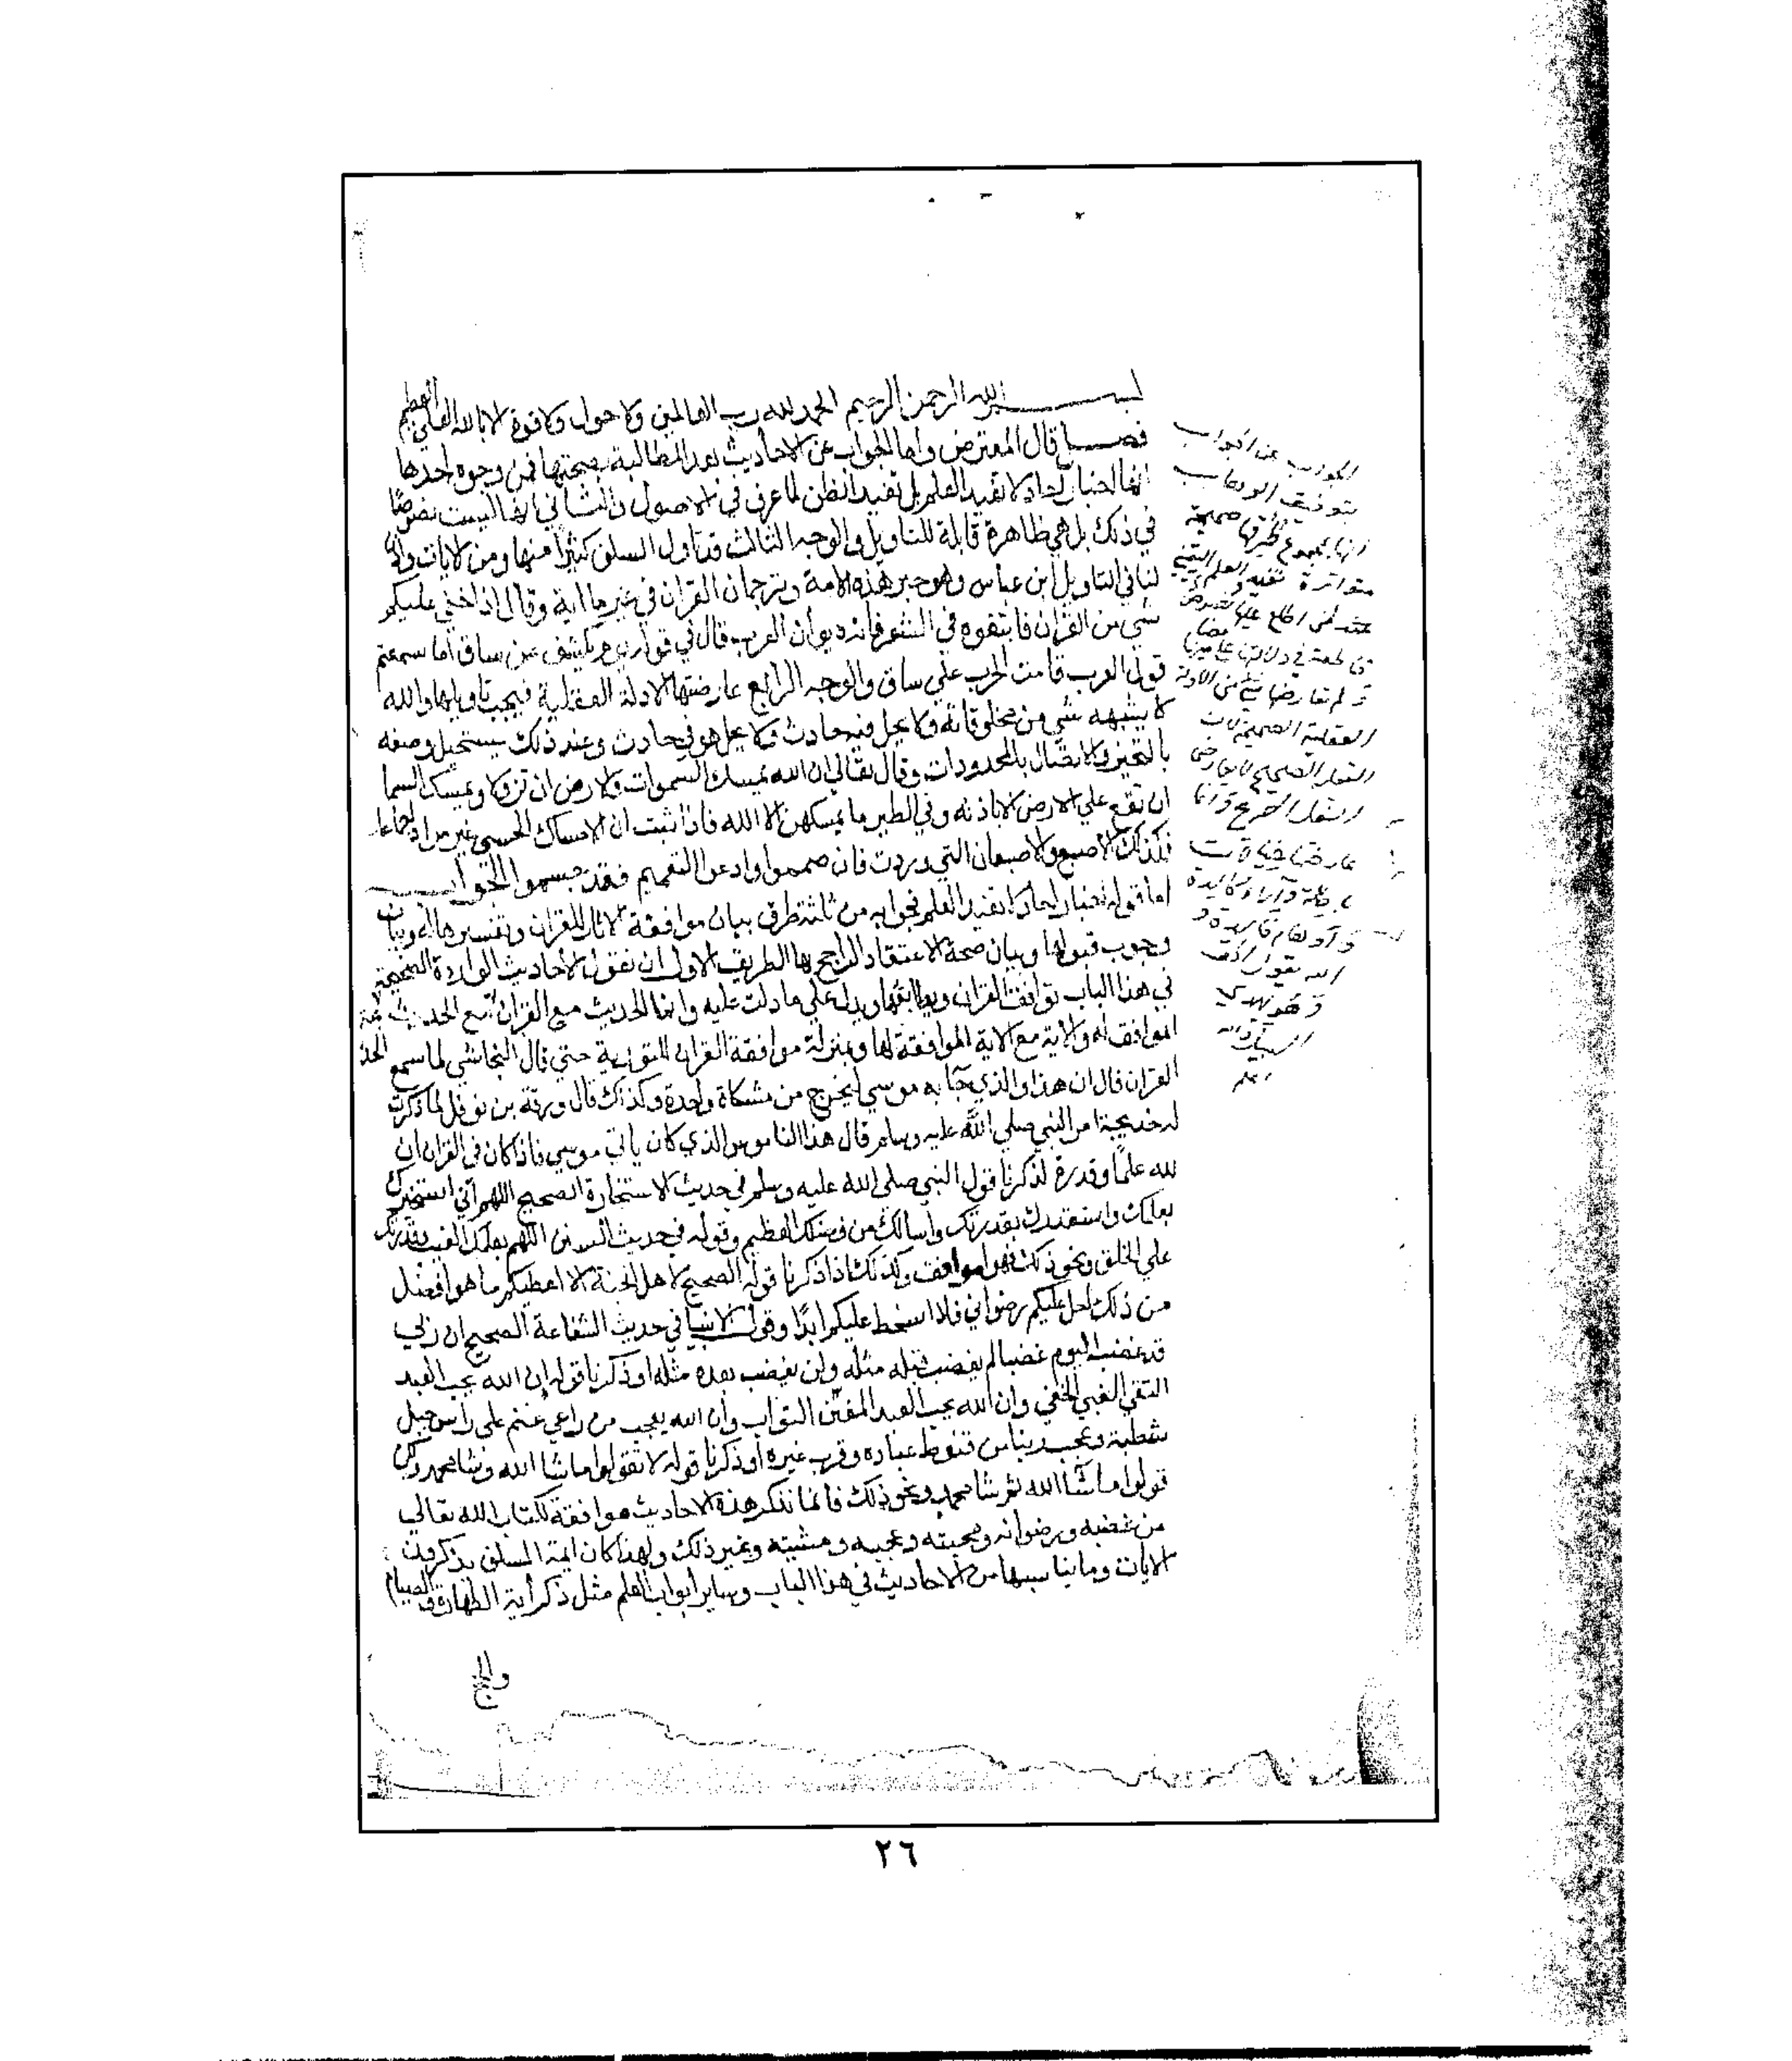 بسم الله الرحمن الرحيم الحمد لله رب العالمين ولا حول ولا قوة الا بالله العلي العظيم
فصل قال المعترض واما الجواب عن الاحاديث بعد المطالبة بصحتها فمن وجوه احدها
انها اخبار احاد لا تفيد العلم بل تفيد الظن لما عرف في الاصول والثاني انها ليست نصوصا
في ذلك بل هي ظاهرة قابلة للتاويل والوجه الثالث قد تاول السلف كثيرا منها ومن الايات
لنا في التاويل ابن عباس وهو حبر هذه الامة وترجمان القران في غير ما اية وقال اذا خفي عليكم
شي من القران فابتغوه في الشعر فانه ديوان العرب قال في قوله يوم يكشف عن ساق اما سمعتم
قول العرب قامت الحرب علي ساق والوجه الرابع عارضتها الادلة العقلية فيجب تاويلها والله
لا يشبهه شي من مخلوقاته ولا يحل فيه حادث ولا يحل هو في حادث وعند ذلك يستحيل وصفه
بالتحيز والاتصال بالمحدودات وقال تعالي ان الله يمسك السموات والارض ان تزولا ويمسك السما
ان تقع علي الارض الا باذنه وفي الطير ما يمسكهن الا الله فاذا ثبت ان الامساك الحسي غير مراد اجماعا
فكذلك الاصبع والاصبعان التي وردت فان صمموا وادعوا التعميم فقد جسموا الجواب
اما قوله اخبار احاد لا تفيد العلم فجوابه من ثلثة طرق بيان موافقة الاثار للقران وتفسيرها له وبيان
وجوب قبولها وبيان صحة الاعتقاد الراجح بها الطريق الاول ان نقول الاحاديث الواردة الصحيحة
في هذا الباب توافق القران ويدل علي ما دلت عليه وانما الحديث مع القران مع الحديث
الموافق له والاية مع الاية الموافقة لها وبمنزلة موافقة القران للتورية حتي قال النجاشي لما سمع
القران قال ان هذا والذي جا به موسي ليخرج من مشكاة واحدة وكذلك قال ورقة بن نوفل لما ذكرت
له خديجة امر النبي صلي الله عليه وسلم قال هذا الناموس الذي كان ياتي موسي فاذا كان في القران ان
لله علما وقدرة لذكرنا قول النبي صلي الله عليه وسلم في حديث الاستخارة الصحيح اللهم اني استخيرك
بعلمك واستقدرك بقدرتك واسالك من فضلك العظيم وقوله في حديث السنن اللهم بعلمك الغيب وقدرتك
علي الخلق ونحو ذلك فهو موافق وكذلك اذا ذكرنا قوله الصحيح لاهل الجنة الا اعطيكم ما هو افضل
من ذلك احل عليكم رضواني فلا اسخط عليكم ابدا وقول الانبيا في حديث الشفاعة الصحيح ان ربي
قد غضب اليوم غضبا لم يغضب قبله مثله ولن يغضب بعده مثله او ذكرنا قوله ان الله يحب العبد
التقي الغني الخفي وان الله يحب العبد المفتن التواب وان الله يعجب من راعي غنم علي راس جبل
شظية وعجب ربنا من قنوط عباده وقرب غيره او ذكرنا قوله لا تقولوا ما شا الله وشا محمد ولكن
قولوا ما شا الله ثم شا محمد ونحو ذلك فانما نذكر هذه الاحاديث موافقة لكتاب الله تعالي
من غضبه ورضوانه ومحبته وعجبه ومشيته وغير ذلك ولهذا كان ايمة السلف يذكرون
الايات وما يناسبها من الاحاديث في هذا الباب وساير ابواب العلم مثل ذكر اية الطهارة والصيام
والحج
الجواب عن الجواب
بتوفيق الوهاب
انها بمجموع طرقها صحيحة
متواترة تفيد العلم
لمن اطلع عليها
لم تعارضها شي من الادلة
العقلية الصحيحة
العقل الصحيح لا يعارض
النقل الصريح وانما
عارضها خيالات
باطلة وآراء كاسدة
واوهام فاسدة و
الله يقول الحق
وهو يهدي
السبيل والله
اعلم
٢٦